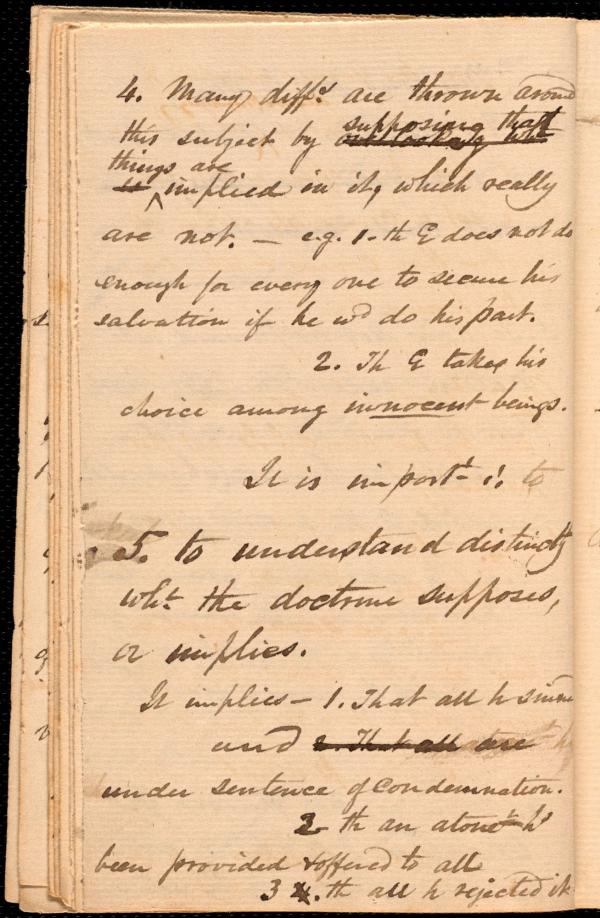 4. Many diffs are thrown around
this subject by supposing that
things are
^ implied in it, which really
are not. — e.g. 1. th G does not do
enough for every one to secure his
salvation if he wd do his part.
2. Th G takes his
choice among innocent beings.
It is import- to
5. to understand distinctly
wht the doctrine supposes,
or implies.
It implies — 1. That all h sinned
and 2. That all are
under sentence of condemnation.
2 th an atonet hs
been provided & offered to all
3 4. th all h rejected it